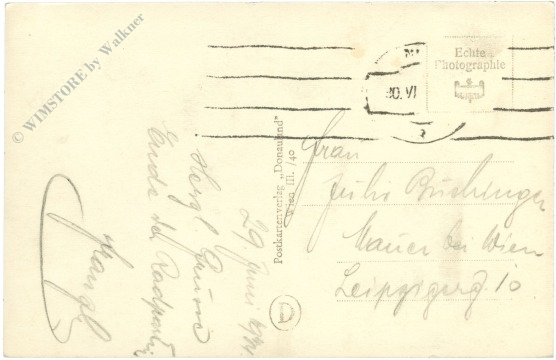 © WIMSTORE by Walkner
Echte
Photographie
30. VI
Postkartenverlag „Donauland“
Wien III. /40
D
Frau
Buchinger
Mauer bei Wien
Leipzigerg. 10
29. Juni
Herzl. Grüße
Ende der